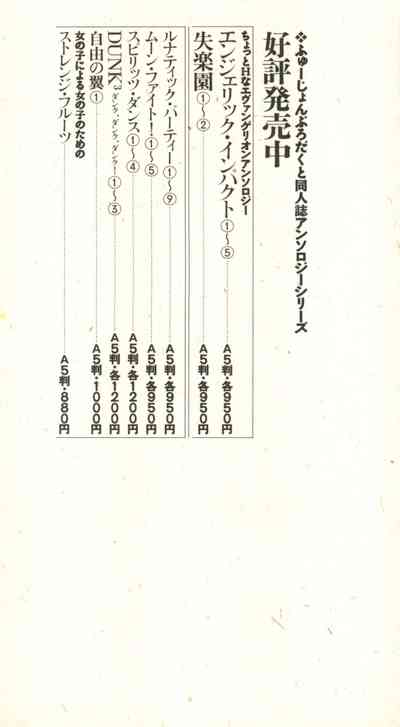 ※ふゅーじょんぷろだくと同人誌アンソロジーシリーズ
好評発売中
ちょっとHなエヴァンゲリオンアンソロジー
エンジェリック・インパクト①〜⑤………A5判・各950円
失楽園①〜②………A5判・各950円
ルナティック・パーティー①〜⑨………A5判・各950円
ムーン・ファイト！①〜⑤………A5判・各950円
スピリッツ・ダンス①〜④………A5判・各1200円
DUNK³ダンク、ダンク、ダンク！①〜③………A5判・各1200円
自由の翼①………A5判・1000円
女の子による女の子のための
ストレンジ・フルーツ………A5判・880円